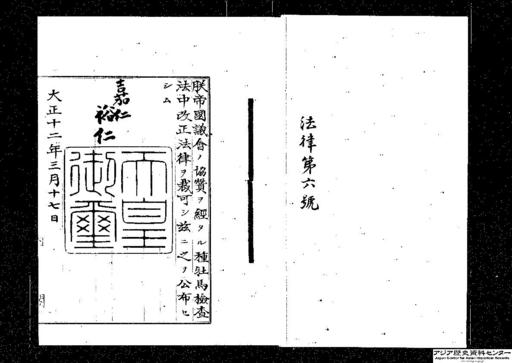 法律第六號
朕帝國議會ノ協贊ヲ經タル種牡馬檢査
法中改正法律ヲ裁可シ茲ニ之ヲ公布セ
シム
嘉仁
裕仁
天皇
御璽
大正十二年三月十七日
アジア歴史資料センター
Japan Center for Asian Historical Records